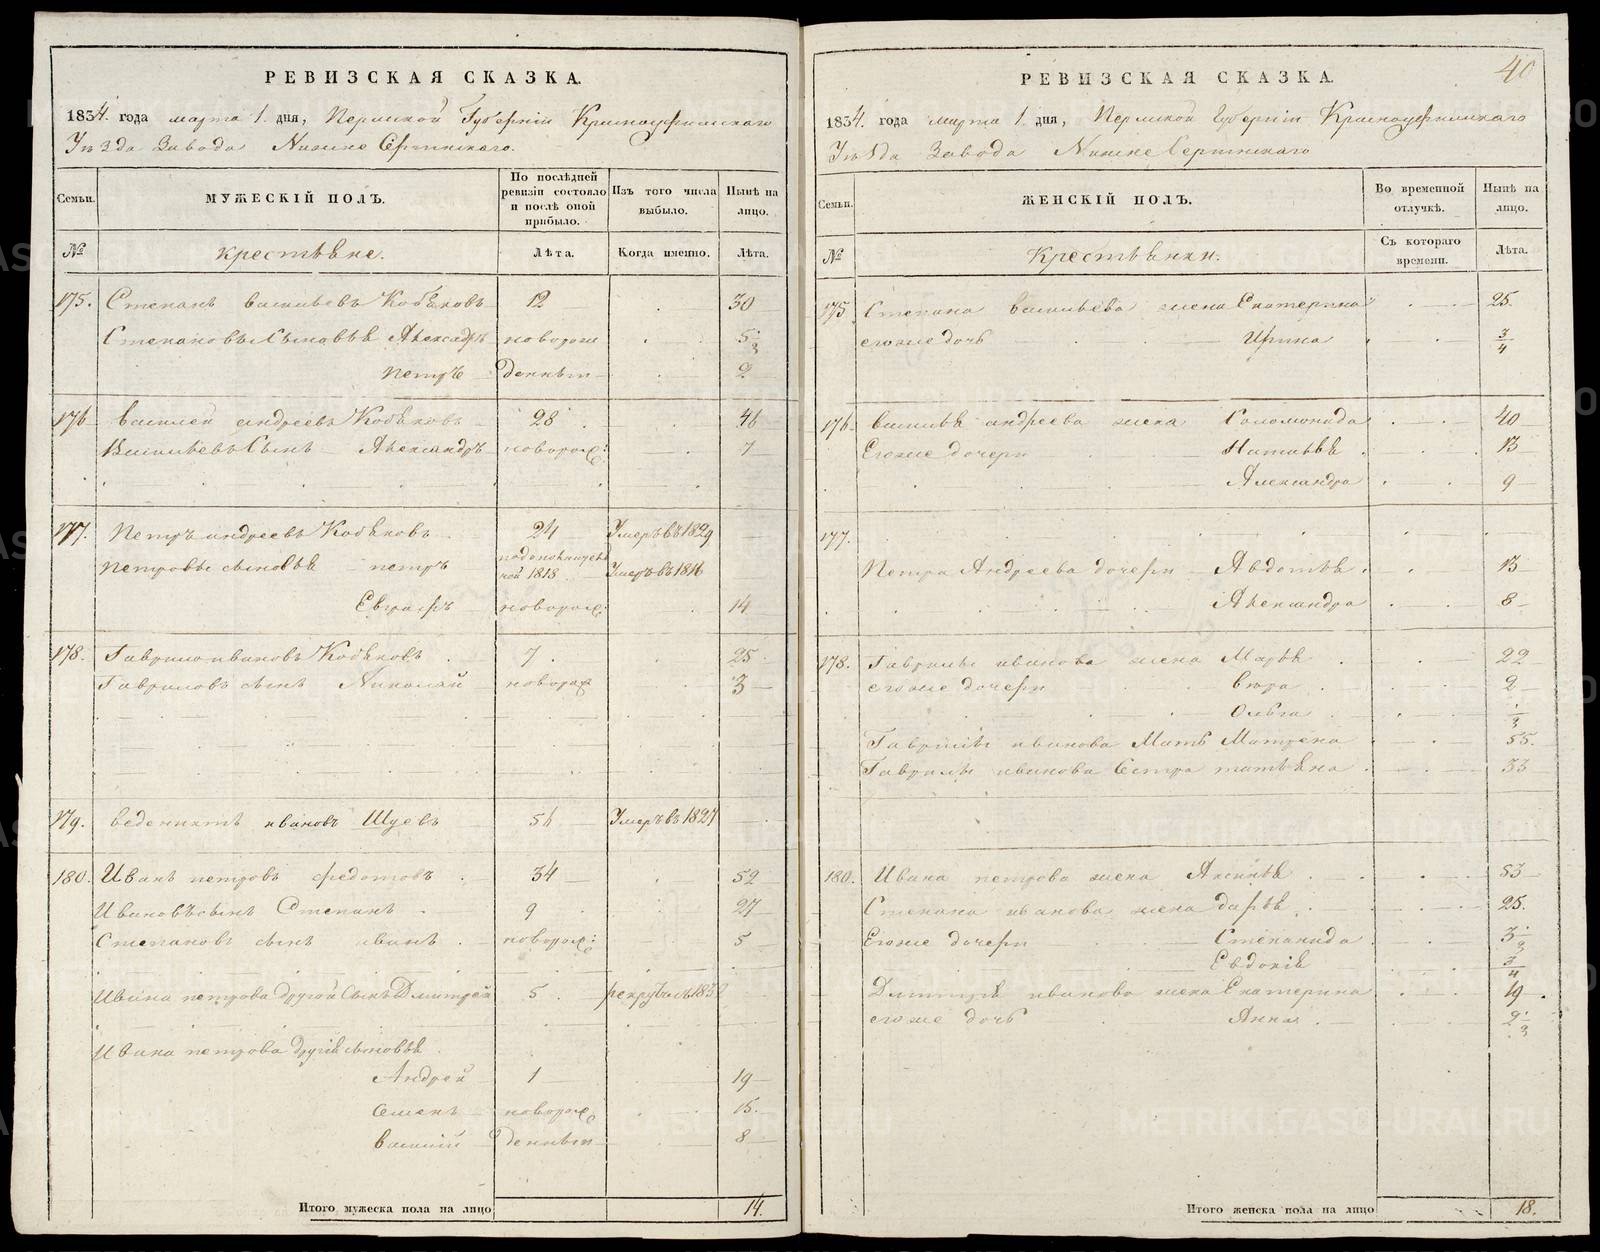 РЕВИЗСКАЯ СКАЗКА.
1834. года марта 1. дня, Пермской Губерніи Красноуфимскаго
Уѣзда Завода Нижне Сергинскаго.
Семьи.
МУЖЕСКІЙ ПОЛЪ.
По послѣдней ревизіи состояло и послѣ оной прибыло.
Изъ того числа выбыло.
Нынѣ на лицо.
№
крестьяне.
Лѣта.
Когда именно.
Лѣта.
175. Степанъ васильевъ Кобяковъ 12 30
Степановы Сыновья Александръ новорож 5 2/3
Петръ деннын 2
176 василей андреевъ Кобяковъ 28 46
Васильевъ Сынъ Александръ новорож: 7
177. Петръ андреевъ Кобяковъ 24 Умеръ въ 1829
Петровы сыновья петръ 1813 Умеръ въ 1816
Евграфъ новорож: 14
178. Гаврило ивановъ Кобяковъ 7. 25
Гавриловъ сынъ Николай новорож 3
179. веденихтъ ивановъ Шуевъ 56 Умеръ въ 1827
180. Иванъ петровъ федотовъ 34 52
Ивановъ сынъ Степанъ 9 27
Степановъ сынъ иванъ новорож: 5
Ивана петрова другой Сынъ Дмитрей 5. рекрутъ съ 1832
Ивана петрова другія сыновья
Андрей 1 19
семенъ новорож 15.
василій деннын 8
Итого мужеска пола на лицо 14.
40
РЕВИЗСКАЯ СКАЗКА.
1834. года марта 1. дня, Пермской Губерніи Красноуфимскаго
Уѣзда Завода Нижне Сергинскаго
Семьи.
ЖЕНСКІЙ ПОЛЪ.
Во временной отлучкѣ.
Нынѣ на лицо.
№
Крестьянки.
Съ котораго времени.
Лѣта.
175 Степана васильева жена Екатерина 25.
егоже дочь Ирина 3/4
176. василья андреева жена Соломонида 40
Егоже дочери Наталья 13
Александра 9
177.
Петра Андреева дочери Авдотья 13
Александра 8
178. Гаврилы иванова жена Марья 22
егоже дочери вера 2
Ольга 1/3
Гаврилы иванова Мать Матрена 55.
Гаврилы иванова Сестра татьяна 33
180. Ивана петрова жена Аксинья 53
Степана иванова жена дарья 25.
Егоже дочери Степанида 3 2/3
Евдокія 3/4
Дмитрія иванова жена Екатерина 19
егоже дочь Анна 2 1/3
Итого женска пола на лицо 18.
METRIKI.GASO-URAL.RU